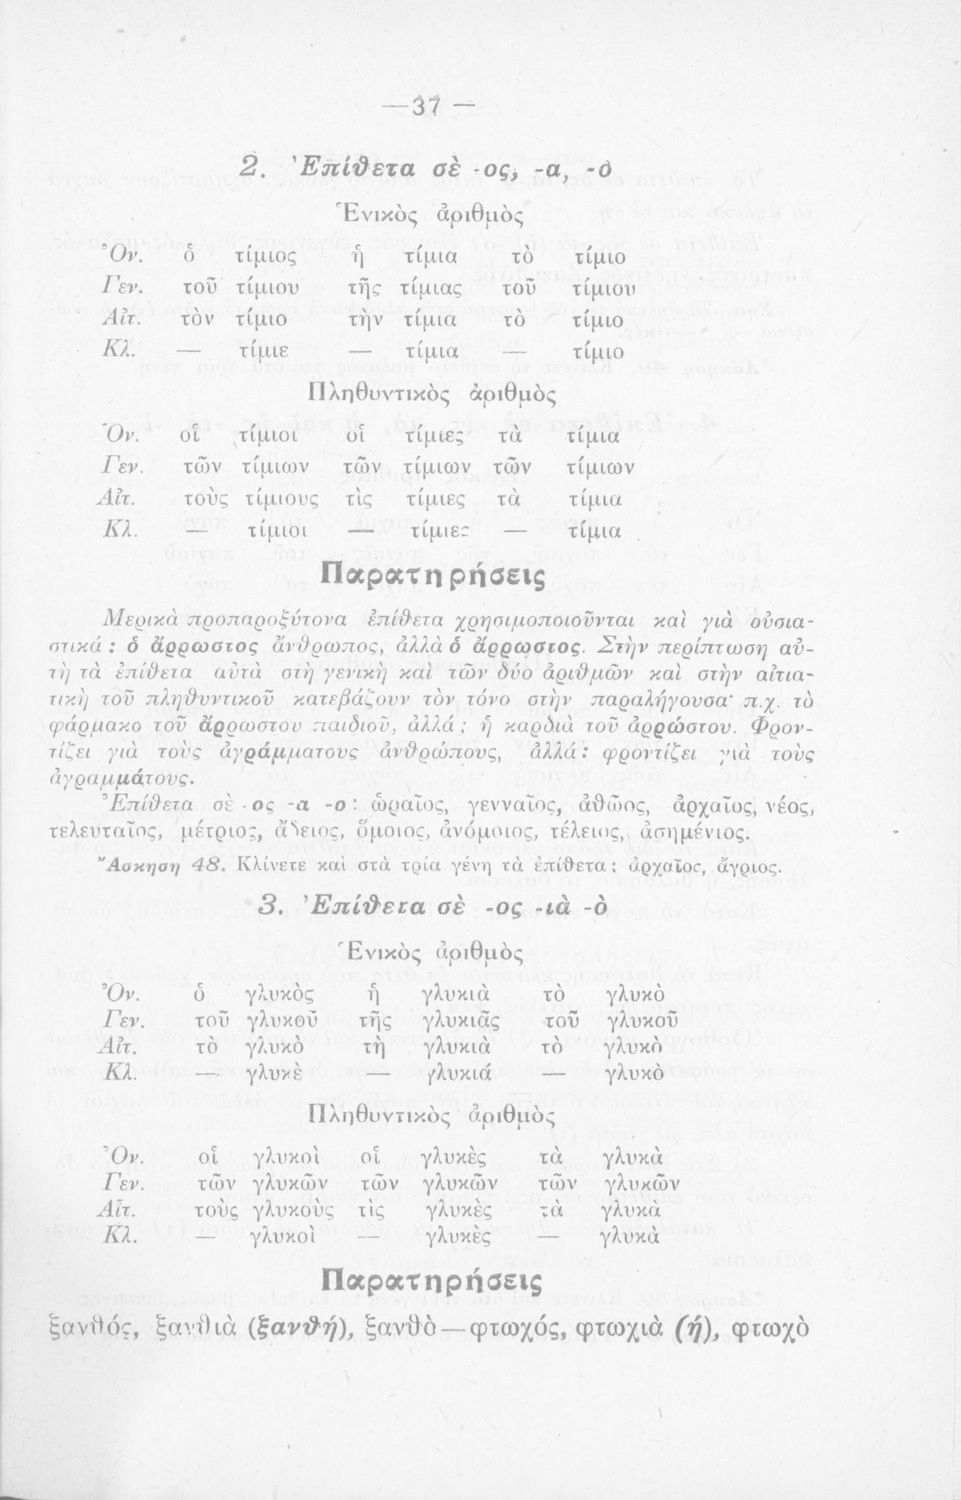 —37 —
2. Ἐπίθετα σὲ -ος, -α, -ὸ
Ἑνικὸς ἀριθμὸς
Ὀν. ὁ τίμιος ἡ τίμια τὸ τίμιο
Γεν. τοῦ τίμιου τῆς τίμιας τοῦ τίμιου
Αἰτ. τὸν τίμιο τὴν τίμια τὸ τίμιο
Κλ. — τίμιε — τίμια — τίμιο
Πληθυντικὸς ἀριθμὸς
Ὀν. οἱ τίμιοι οἱ τίμιες τὰ τίμια
Γεν. τῶν τίμιων τῶν τίμιων τῶν τίμιων
Αἰτ. τοὺς τίμιους τὶς τίμιες τὰ τίμια
Κλ. — τίμιοι — τίμιες — τίμια
Παρατηρήσεις
Μερικὰ προπαροξύτονα ἐπίθετα χρησιμοποιοῦνται καὶ γιὰ οὐσια-
στικά : ὁ ἄρρωστος ἄνθρωπος, ἀλλὰ ὁ ἄρρωστος. Στὴν περίπτωση αὐ-
τὴ τὰ ἐπίθετα αὐτὰ στὴ γενικὴ καὶ τῶν δύο ἀριθμῶν καὶ στὴν αἰτια-
τικὴ τοῦ πληθυντικοῦ κατεβάζουν τὸν τόνο στὴν παραλήγουσα· π.χ. τὸ
φάρμακο τοῦ ἄρρωστου παιδιοῦ, ἀλλά : ἡ καρδιὰ τοῦ ἀρρώστου. Φρον-
τίζει γιὰ τοὺς ἀγράμματους ἀνθρώπους, ἀλλά : φροντίζει γιὰ τοὺς
ἀγραμμάτους.
Ἐπίθετα σὲ -ος -α -ο : ὡραῖος, γενναῖος, ἀθῶος, ἀρχαῖος, νέος,
τελευταῖος, μέτριος, ἄδειος, ὅμοιος, ἀνόμοιος, τέλειος, ἀσημένιος.
Ἄσκηση 48. Κλίνετε καὶ στὰ τρία γένη τὰ ἐπίθετα : ἀρχαῖος, ἄγριος.
3. Ἐπίθετα σὲ -ος -ιὰ -ὸ
Ἑνικὸς ἀριθμὸς
Ὀν. ὁ γλυκὸς ἡ γλυκιὰ τὸ γλυκὸ
Γεν. τοῦ γλυκοῦ τῆς γλυκιᾶς τοῦ γλυκοῦ
Αἰτ. τὸ γλυκὸ τὴ γλυκιὰ τὸ γλυκὸ
Κλ. — γλυκὲ — γλυκιά — γλυκὸ
Πληθυντικὸς ἀριθμὸς
Ὀν. οἱ γλυκοὶ οἱ γλυκὲς τὰ γλυκὰ
Γεν. τῶν γλυκῶν τῶν γλυκῶν τῶν γλυκῶν
Αἰτ. τοὺς γλυκοὺς τὶς γλυκὲς τὰ γλυκὰ
Κλ. — γλυκοὶ — γλυκὲς — γλυκὰ
Παρατηρήσεις
ξανθός, ξανθιὰ (ξανθή), ξανθὸ — φτωχός, φτωχιὰ (ή), φτωχὸ